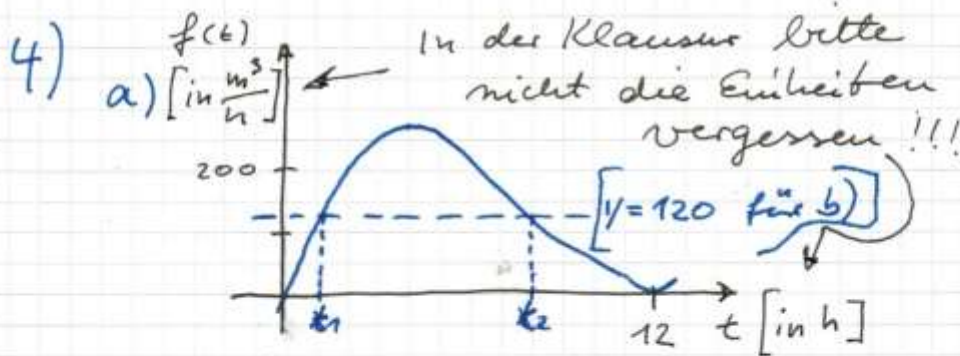 4)
a)
f(t)
[in m³/h]
In der Klausur bitte
nicht die Einheiten
vergessen !!!
200
[y=120 für b)]
t1
t2
12
t [in h]